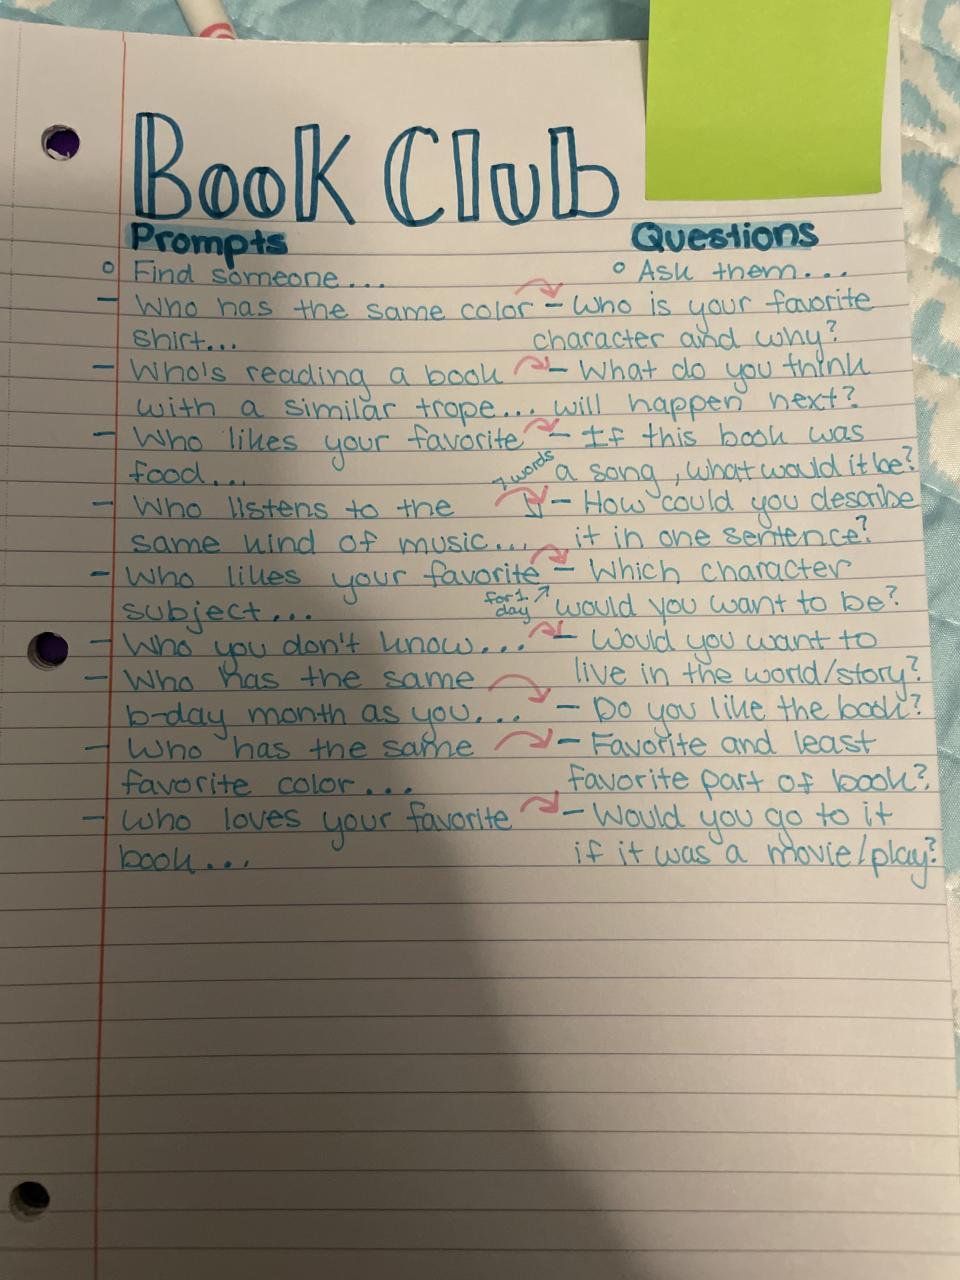 Book Club
Prompts
Questions
° Find someone...
° Ask them...
- Who has the same color
- Who is your favorite
shirt...
character and why?
- Who's reading a book
- What do you think
with a similar trope...
will happen next?
- Who likes your favorite
- If this book was
food...
a song, what would it be?
7 words
- Who listens to the
- How could you describe
same kind of music...
it in one sentence?
- Who likes your favorite
- Which character
subject...
for 1
day
would you want to be?
- Who you don't know...
- Would you want to
- Who has the same
live in the world/story?
b-day month as you...
- Do you like the book?
- Who has the same
- Favorite and least
favorite color...
favorite part of book?
- Who loves your favorite
- Would you go to it
book...
if it was a movie/play?